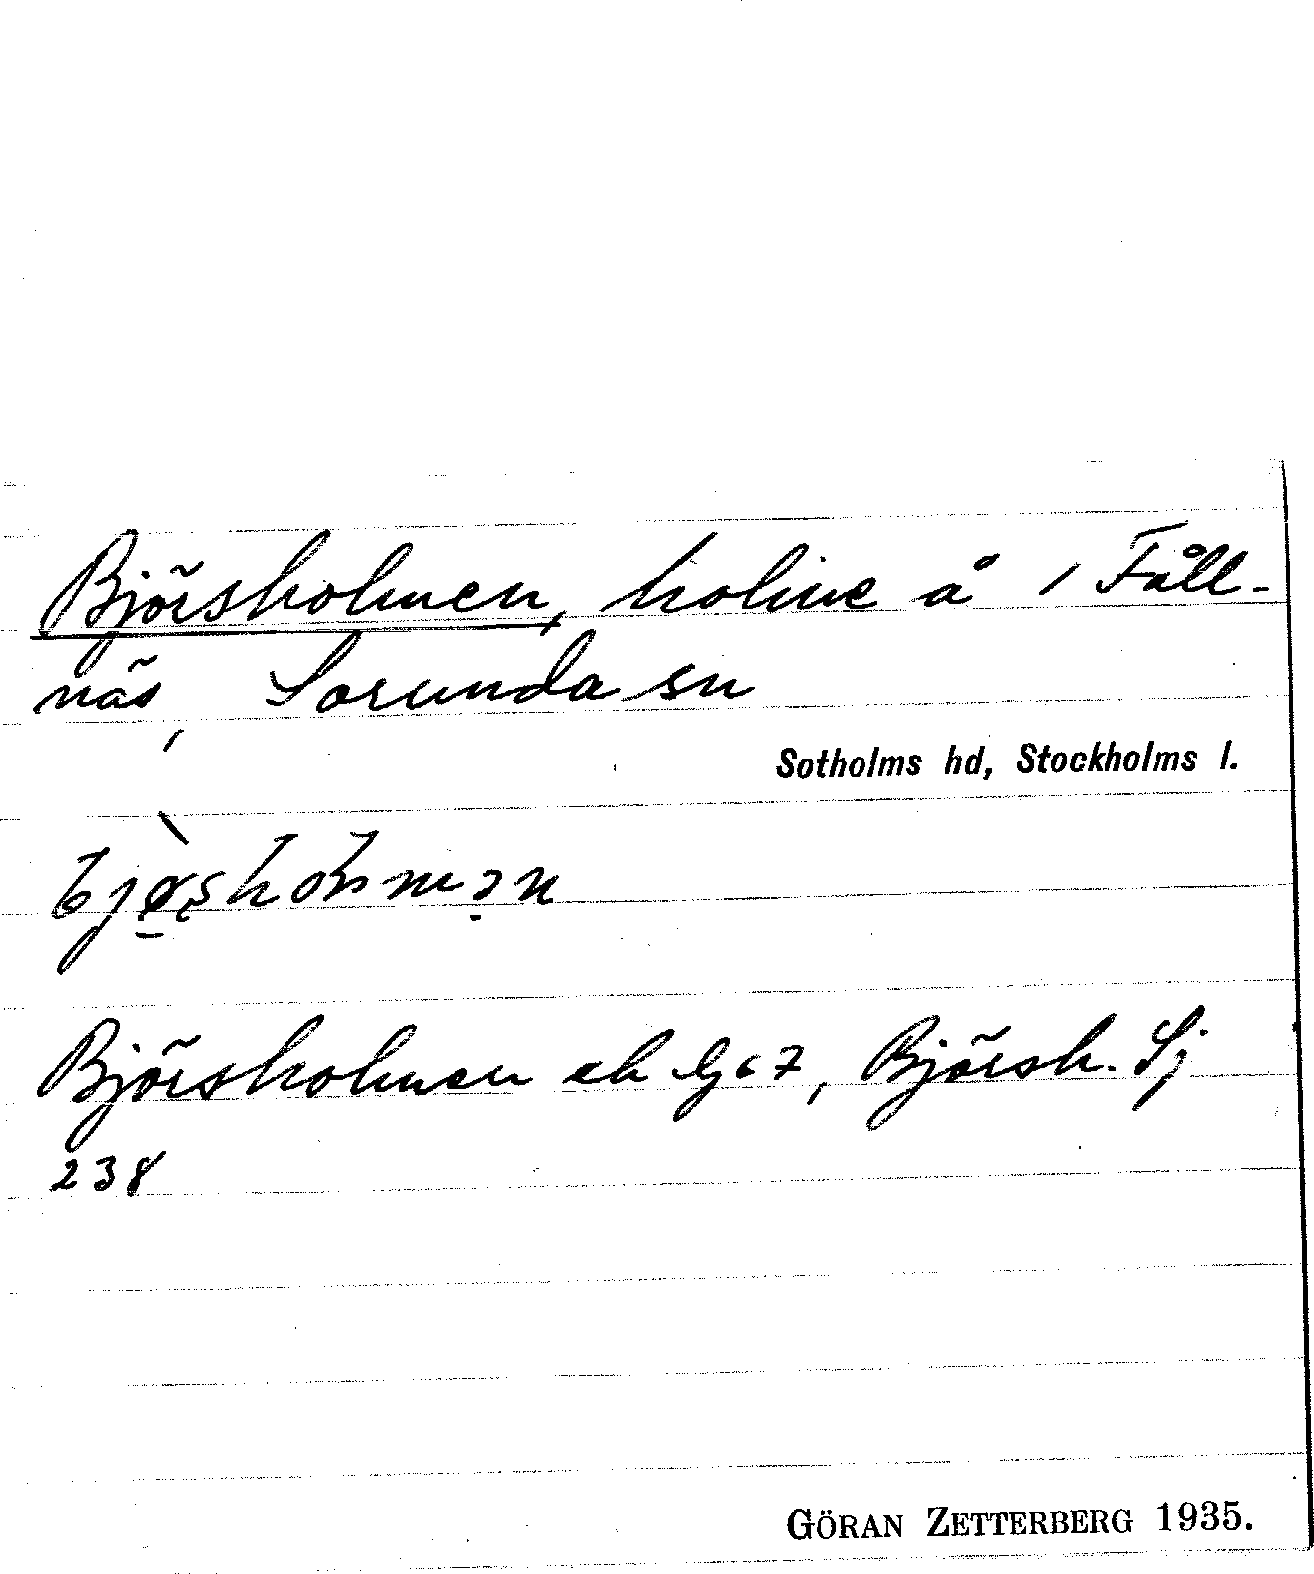 Björsholmen, holme å 1 Fåll-
näs, Sorunda sn
Sotholms hd, Stockholms l.
Björsholmen ek, Björsh. Sj
238
GÖRAN ZETTERBERG 1935.